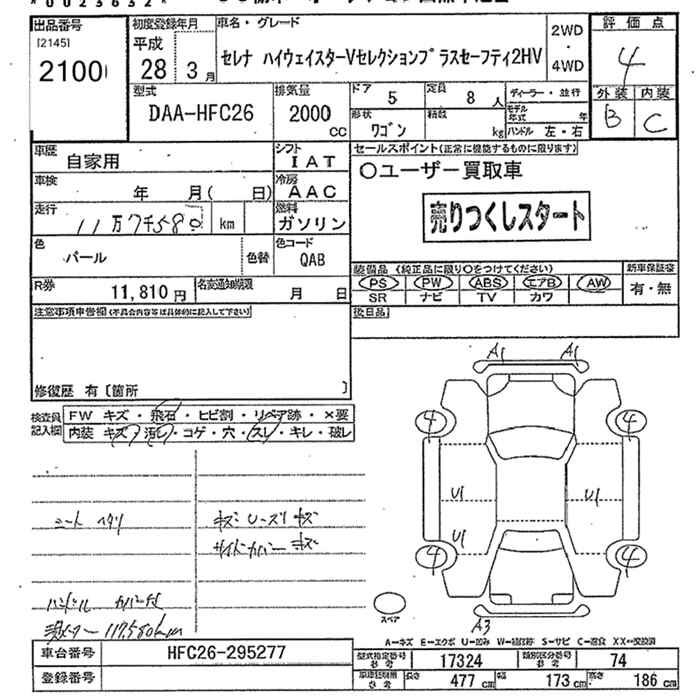 出品番号
[2145]
2100
初度登録年月
平成
28年 3月
車名・グレード
セレナ ハイウェイスターVセレクションプラスセーフティ2HV
2WD
・
4WD
評価点
4
外装 内装
B C
型式
DAA-HFC26
排気量
2000
CC
ドア
5
定員
8人
形状
ワゴン
積載
kg
ディーラー・並行
モデル年式 年
ハンドル 左・右
車歴
自家用
シフト
IAT
セールスポイント(正常に機能するものに限ります)
〇ユーザー買取車
売りつくしスタート
車検
年 月( 日)
冷房
AAC
走行
11万7千580 km
燃料
ガソリン
色
パール
色替
色コード
QAB
装備品 (純正品に限り〇をつけてください)
PS PW ABS エアB AW
SR ナビ TV カワ
新車保証書
有・無
R券
11,810円
名変通知期限
月 日
後日品
注意事項申告欄(不具合内容等は具体的に記入して下さい)
修復歴 有 [箇所 ]
検査員記入欄
FW キズ・飛石・ヒビ割・リペア跡・×要
内装 キズ・汚レ・コゲ・穴・スレ・キレ・破レ
シート ヘタリ
キズ Uーズリ キズ
サイドカバー キズ
ハンドル カバー付
メーター 117,580km
A1 A1
4 4
U1 U1
U1
4 4
A3
スペア
A−キズ E−エクボ U−凹み W−補修跡 S−サビ C−腐食 XX−交換済
車台番号
HFC26-295277
登録番号
型式指定番号
参考
17324
類別区分番号
参考
74
車車検証用
参考
長さ
477cm
幅
173cm
高さ
186cm